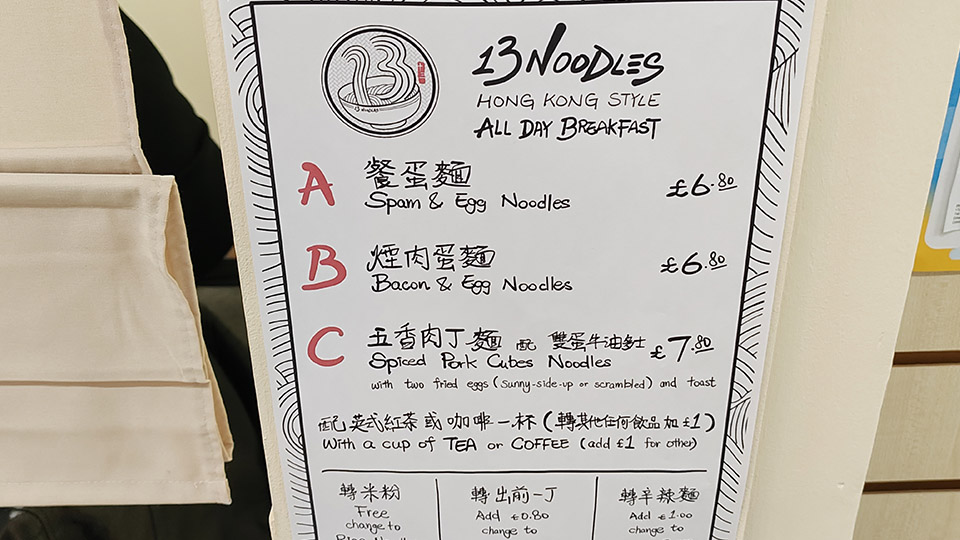 13 NOODLES
HONG KONG STYLE
ALL DAY BREAKFAST
A 餐蛋麵 £6.80
Spam & Egg Noodles
B 煙肉蛋麵 £6.80
Bacon & Egg Noodles
C 五香肉丁麵 配 雙蛋牛油多士 £7.80
Spiced Pork Cubes Noodles
with two fried eggs (sunny-side-up or scrambled) and toast
配英式紅茶或咖啡一杯(轉其他任何飲品加£1)
With a cup of TEA or COFFEE (add £1 for other)
轉米粉
Free
change to
轉出前一丁
Add £0.80
change to
轉辛辣麵
Add £1.00
change to